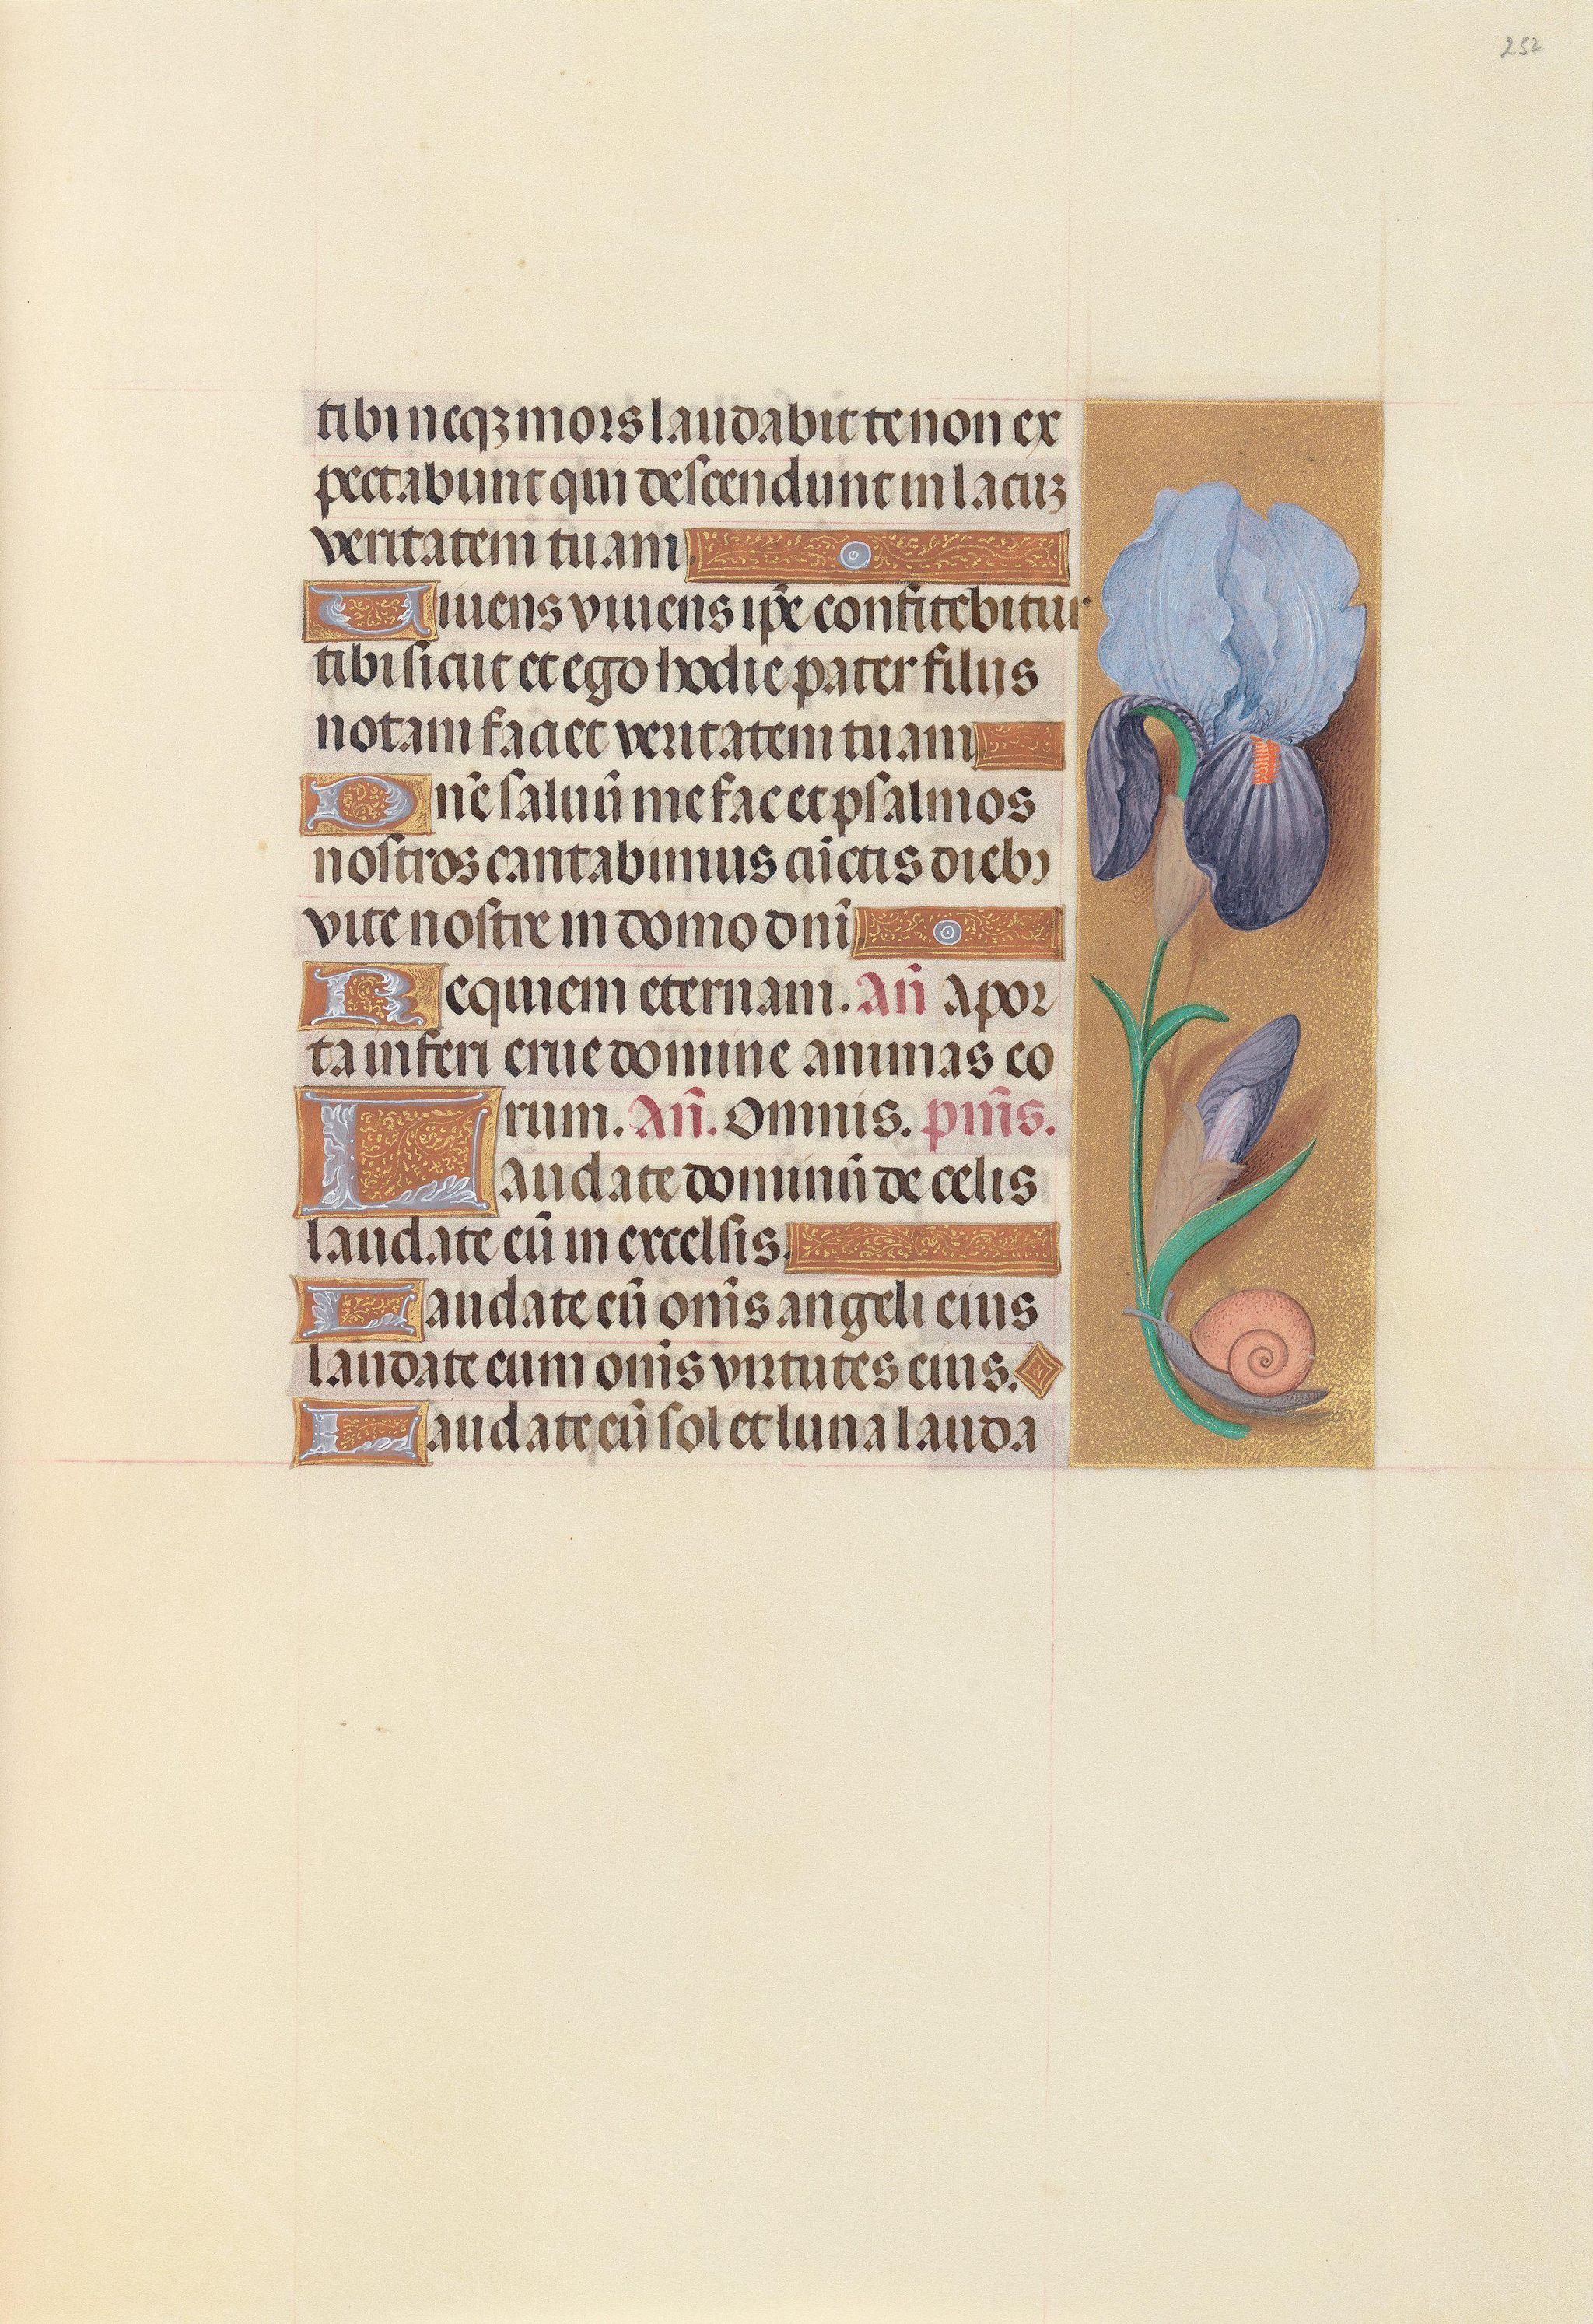 252
tibi neqʒ mors laudabit te non ex
pectabunt qui descendunt in lacuʒ
veritatem tuam.
Uiuens viuens ip̄e confitebitur
tibi sicut et ego hodie pater filijs
notam faciet veritatem tuam
Dn̄e saluū me fac et psalmos
nostros cantabimus cūctis dieb9
vite nostre in domo dn̄i
Requiem eternam. Añ A por
ta inferi erue domine animas eo
rum. Añ. Omnis. pm̄s.
Laudate dominū de celis
laudate eū in excelsis.
Laudate eū om̄s angeli eius
laudate eum om̄s virtutes eius.
Laudate eū sol et luna lauda